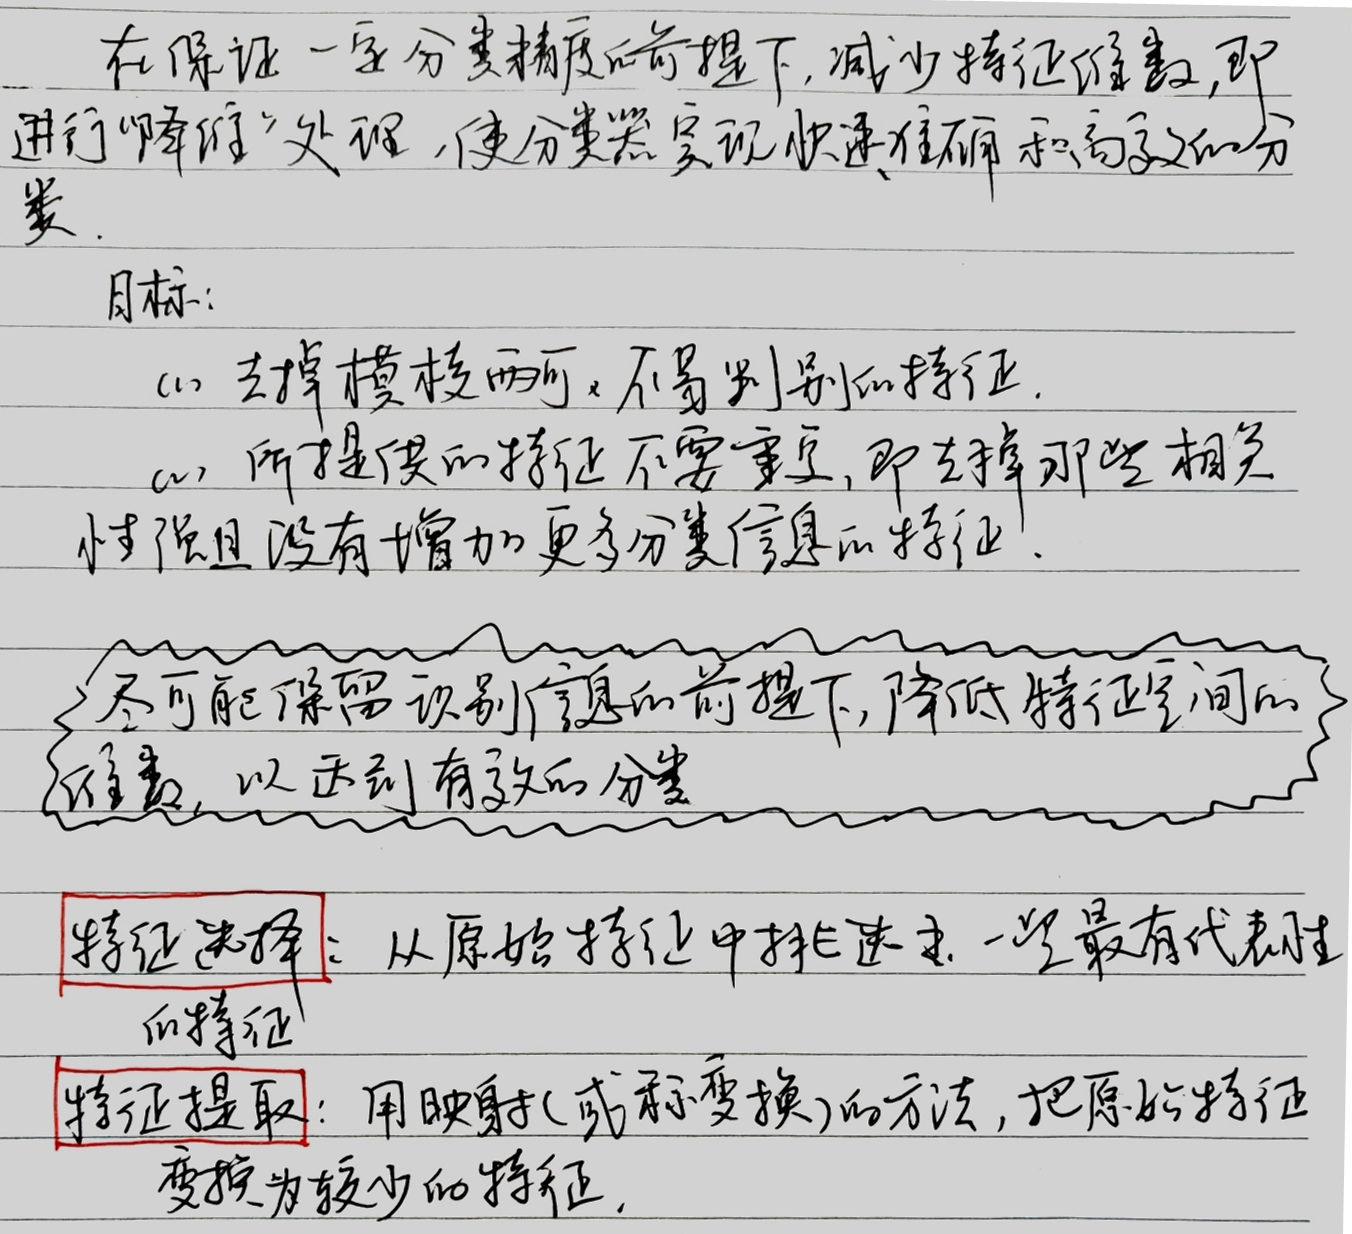 在保证一定分类精度的前提下,减少特征维数,即
进行“降维”处理,使分类器实现快速、准确和高效的分
类.
目标:
(1) 去掉模棱两可、不易判别的特征.
(2) 所提供的特征不要重复,即去掉那些相关
性强且没有增加更多分类信息的特征.
尽可能保留识别信息的前提下,降低特征空间的
维数,以达到有效的分类
特征选择:从原始特征中挑选出一些最有代表性
的特征
特征提取:用映射(或称变换)的方法,把原始特征
变换为较少的特征.